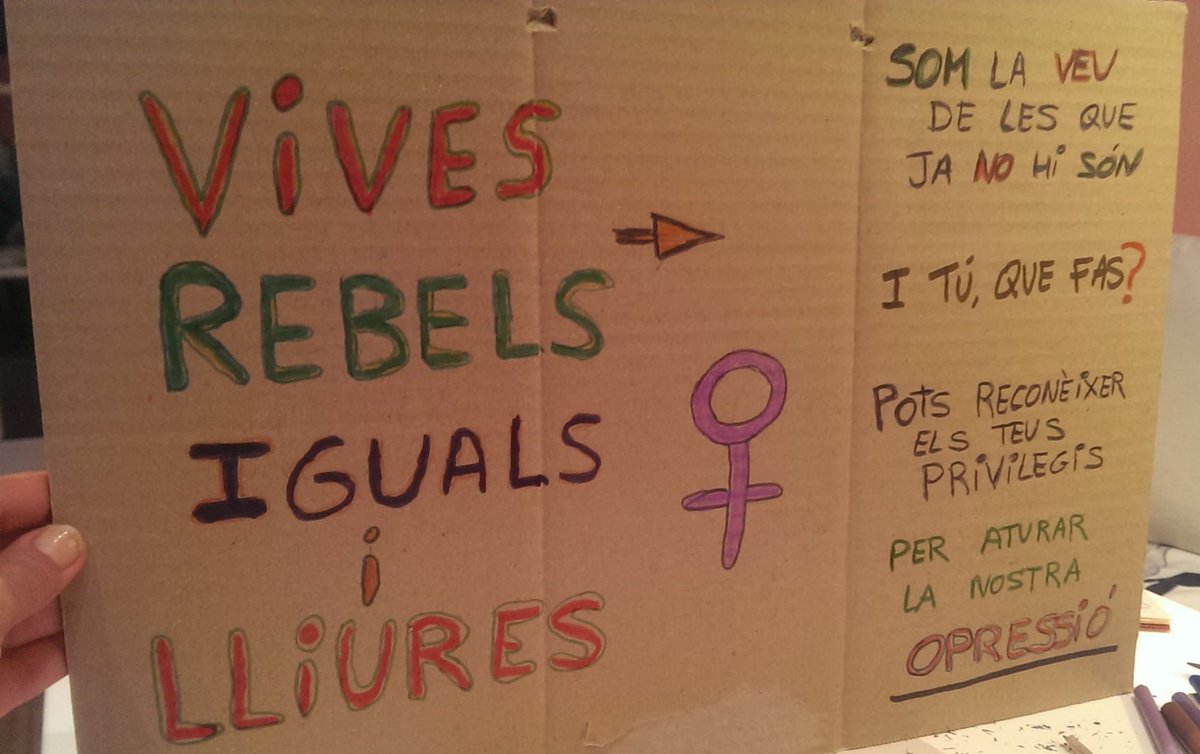 ViVES
REBELS
IGUALS
i
LLiURES
SOM LA VEU
DE LES QUE
JA NO Hi SÓN
I TÚ, QUE FAS?
POtS RECONÈiXER
ELS TEUS
PRiViLEGiS
PER ATURAR
LA NOSTRA
OPRESSiÓ